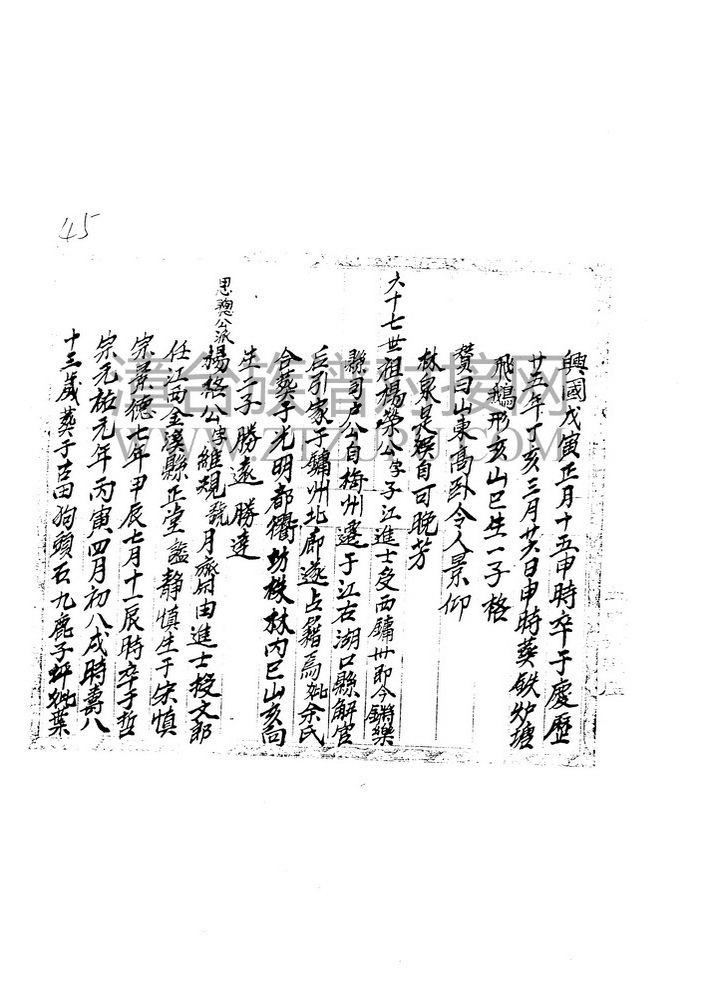 45
興國戊寅正月十五申時卒于慶歷
廿五年丁亥三月廿六日申時葬鉄炉塘
飛鵝形亥山巳生一子格
贊曰山東高卧令人景仰
林泉是娱自可晚芳
六十七世祖楊榮公字子江進士受西鏞州即今將樂
縣司户公自梅州遷于江右湖口縣解官
后引家于鏞州北廓遂占籍焉妣余氏
合葬于光明都衢坊林内巳山亥向
生二子勝遠勝達
思聰公派楊格公字維規號月齋由進士授文郎
任江西金溪縣正堂謚静慎生于宋慎
宗景德七年甲辰七月十二辰時卒于哲
宗元祐元年丙寅四月初八戌時壽八
十三歲葬于吉田狗頭石九鹿子坪妣葉
漳台族谱对接网
WWW.ZTZUPU.COM